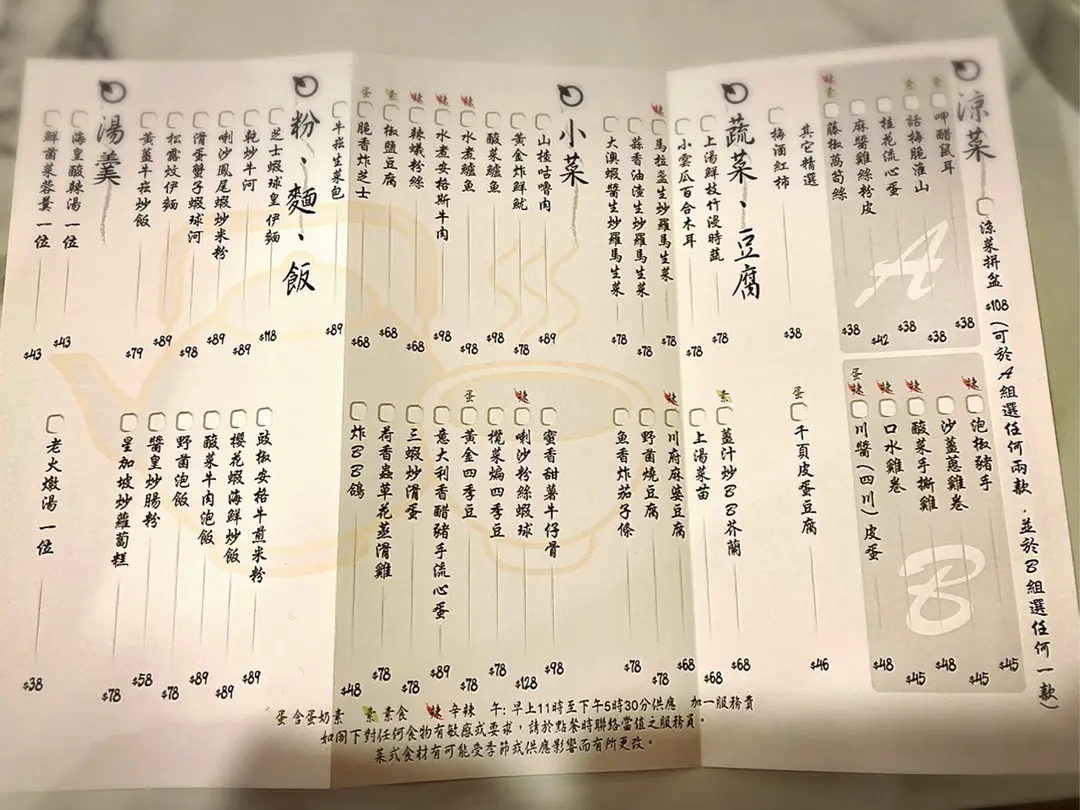 涼菜
涼菜拼盆 $108 (可於A組選任何兩款，並於B組選任何一款)
A
素 呷醋鼠耳 $38
素 話梅脆淮山 $38
桂花流心蛋 $38
麻醬雞絲粉皮 $42
辣 素 藤椒萵筍絲 $38
B
辣 泡椒豬手 $45
沙薑蔥雞卷 $45
辣 酸菜手撕雞 $48
辣 口水雞卷 $45
蛋 辣 川醬(四川)皮蛋 $48
其它精選
梅酒紅柿 $38
蛋 千頁皮蛋豆腐 $46
蔬菜、豆腐
上湯鮮枝竹浸時蔬 $78
小雲瓜百合木耳 $78
辣 馬拉盞生炒羅馬生菜 $78
蒜香油渣生炒羅馬生菜 $78
大澳蝦醬生炒羅馬生菜 $78
素 薑汁炒BB芥蘭 $68
上湯菜苗 $68
辣 川府麻婆豆腐 $68
野菌燒豆腐 $78
魚香炸茄子條 $78
小菜
山楂咕嚕肉 $89
黃金炸鮮魷 $78
酸菜鱸魚 $98
辣 水煮鱸魚 $98
辣 水煮安格斯牛肉 $98
辣 辣螞蟻粉絲 $68
素 椒鹽豆腐 $68
蛋 脆香炸芝士 $68
牛崧生菜包 $89
蜜香甜薯牛仔骨 $98
辣 喇沙粉絲蝦球 $128
欖菜煸四季豆 $78
蛋 黃金四季豆 $78
意大利香醋豬手流心蛋 $89
三蝦炒滑蛋 $78
荷香蟲草花蒸滑雞 $78
炸BB鴿 $48
粉、麵、飯
芝士蝦球皇伊麵 $118
乾炒牛河 $89
喇沙鳳尾蝦炒米粉 $89
滑蛋蟹子蝦球河 $98
松露炆伊麵 $89
黃薑牛崧炒飯 $79
豉椒安格牛煎米粉 $89
櫻花蝦海鮮炒飯 $89
酸菜牛肉泡飯 $89
野菌泡飯 $78
醬皇炒腸粉 $58
星加坡炒蘿蔔糕 $78
湯羹
海皇酸辣湯 一位 $43
鮮菌菜蓉羹 一位 $43
老火燉湯 一位 $38
蛋 含蛋奶素 素 素食 辣 辛辣 午: 早上11時至下午5時30分供應 加一服務費
如閣下對任何食物有敏感或要求，請於點餐時聯絡當值之服務員。
菜式食材有可能受季節或供應影響而有所更改。